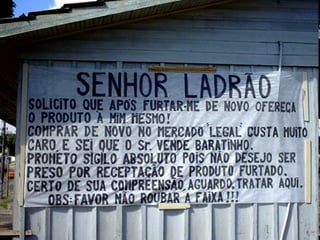 SENHOR LADRÃO
SOLICITO QUE APÓS FURTAR-ME DE NOVO OFEREÇA
O PRODUTO À MIM MESMO!
COMPRAR DE NOVO NO MERCADO "LEGAL" CUSTA MUITO
CARO, E SEI QUE O Sr. VENDE BARATINHO.
PROMETO SIGILO ABSOLUTO POIS NÃO DESEJO SER
PRESO POR RECEPTAÇÃO DE PRODUTO FURTADO.
CERTO DE SUA COMPREENSÃO, AGUARDO. TRATAR AQUI.
OBS: FAVOR NÃO ROUBAR A FAIXA!!!